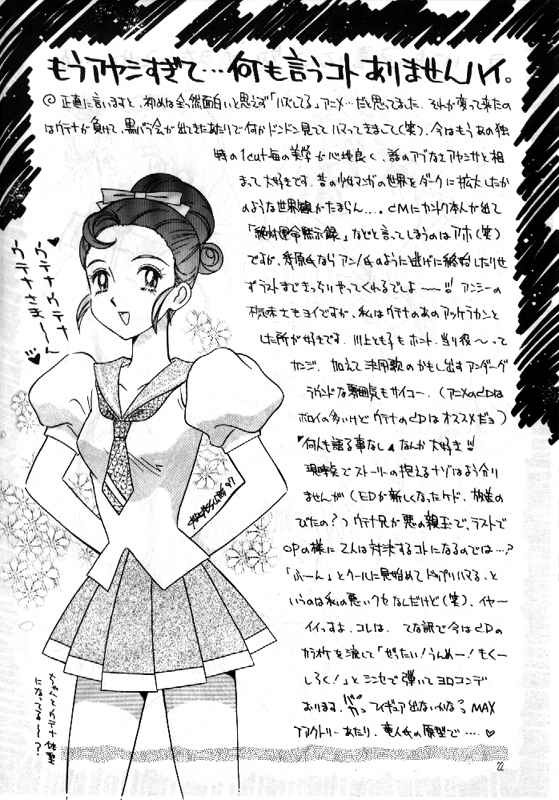 もうアヤシすぎて…何も言うコトありませんハイ。
◎正直に言いますと、初めは全然面白いと思えず「ハズしてる」アニメ…だと思ってました。それが変って来たの
はウテナが負けて、黒バラ会が出てきたあたりで何かドンドン見ててハマってきまして(笑)、今はもうあの独
特の1cut毎の美学が心地良く、話のアブなさアヤシサと相
まって大好きです。昔の少女マンガの世界をダークに拡大したか
のような世界がたまらん…。CMにカントク本人が出て
「絶対運命黙示録」などと言ってしまうのはアホ(笑)
ですが、幾原氏ならアンノ氏のように逃げに終始したりせ
ずラストまできっちりやってくれるでしょ――!!! アンシーの
ヨイですが、私はウテナのあのアッケラカンと
した所が好きです。川上とも子もホント、当り役〜って
カンジ。加えて決闘歌のかもし出すアンダーグ
ラウンドな雰囲気もサイコー。(アニメのCDは
ボロイの多いけどウテナのCDはオススメだっ)
"何人も語る事なし"なんか大好き!!
現時点でストーリーの抱えるナゾはよう分り
ませんが(EDが新しくなったケド、放送の
びたの?)ウテナ兄が悪の親玉で、ラストで
OPの様に2人は対決するコトになるのでは…?
「ふーん」とクールに見始めてドップリハマる、と
いうのは私の悪いクセなんだけど(笑)、イヤー
イイっすよ、コレは。てな訳で今はCDの
カラオケを流して「ぜったい!うんめー!もくー
しろく!」とシンセで弾いてヨロコンデ
おります。バカっ フィギュア出ないかな? MAX
ファクトリーあたり、竜人氏の原型で……♡
ウテナウテナ
ウテナさま〜〜ん
♡
'97
ちょっとウテナ体型
になってる〜?
22